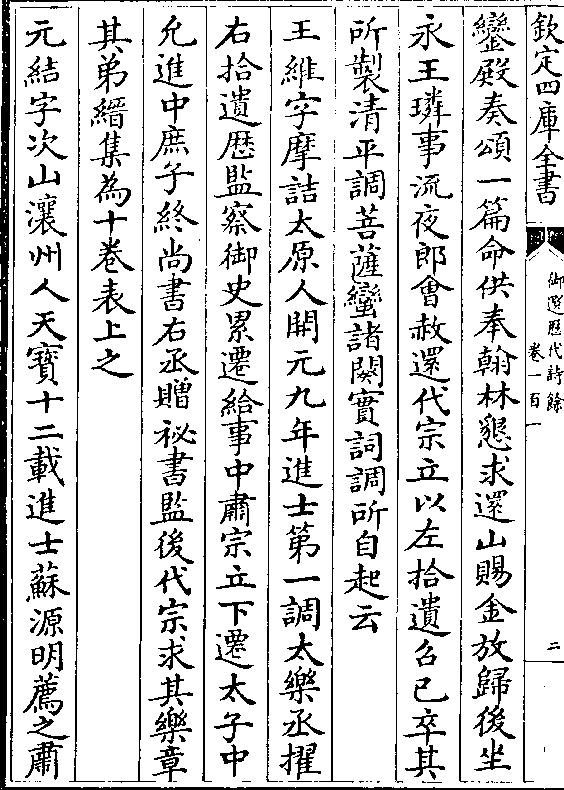 欽定四庫全書
御選歷代詩餘
卷一百一
二
鑾殿奏頌一篇命供奉翰林懇求還山賜金放歸後坐
永王璘事流夜郎會赦還代宗立以左拾遺召已卒其
所製清平調菩薩蠻諸闋實詞調所自起云
王維字摩詰太原人開元九年進士第一調太樂丞擢
右拾遺歴監察御史累遷給事中肅宗立下遷太子中
允進中庶子終尚書右丞贈祕書監後代宗求其樂章
其弟縉集為十卷表上之
元結字次山瀼州人天寶十二載進士蘇源明薦之肅